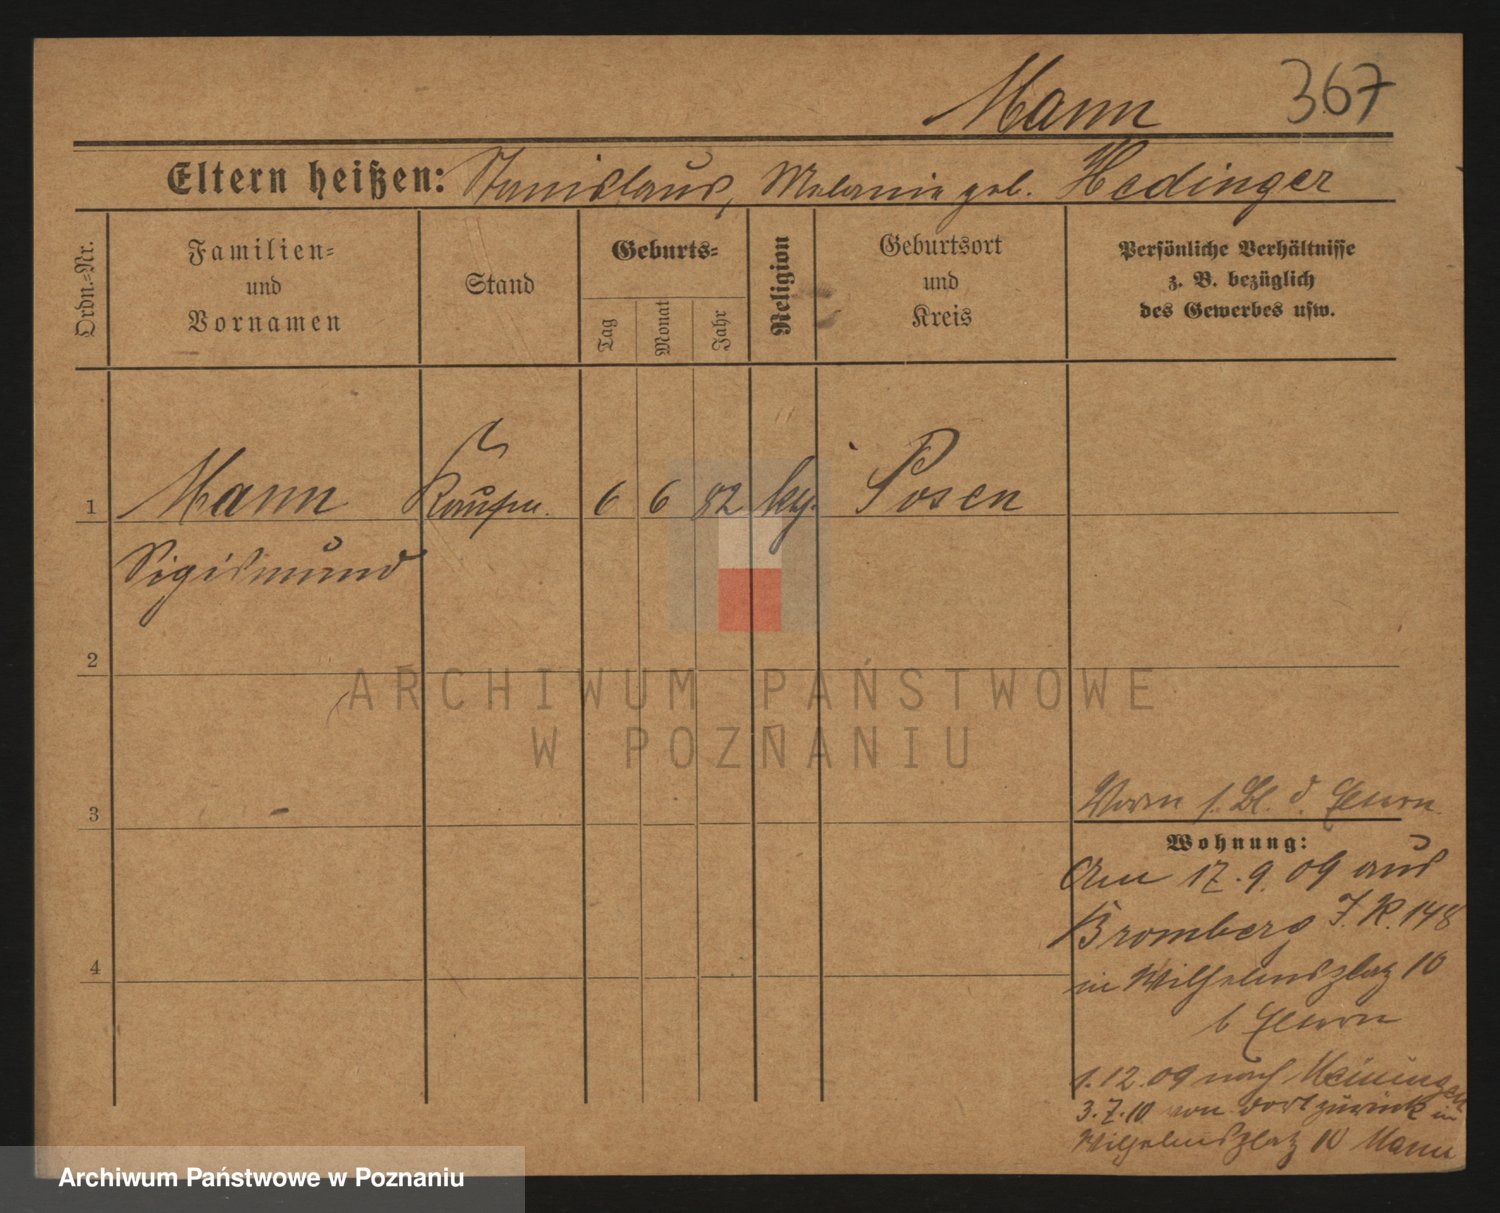 Mann 367
Eltern heißen: Stanislaus, Melanie geb. Hedinger
Ordn.=Nr.
Familien=
und
Vornamen
Stand
Geburts=
Tag
Monat
Jahr
Religion
Geburtsort
und
Kreis
Persönliche Verhältnisse
z. B. bezüglich
des Gewerbes usw.
1 Mann Kaufm. 6 6 82 Posen
Sigismund
2
ARCHIWUM PAŃSTWOWE
W POZNANIU
3
Vorm s. Bl. d. Eltern
Wohnung:
Am 17.9.09 aus
Bromberg J.R. 148
in Wilhelmsplatz 10
b Eltern
4
1.12.09 nach Meiningen
3.7.10 von dort zurück in
Wilhelmsplatz 10 Mann
Archiwum Państwowe w Poznaniu